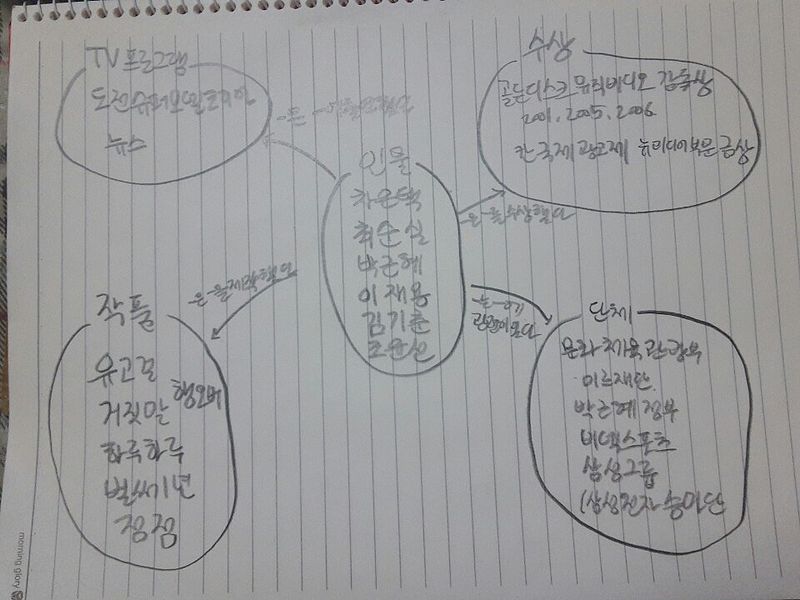 TV 프로그램
도전슈퍼모델코리아
뉴스
수상
골든디스크 뮤직비디오 감독상
2001. 2005. 2006
칸 국제 광고제 뉴미디어부문 금상
인물
차은택
최순실
박근혜
이재용
김기춘
조윤선
은 -을 수상했다
은 -을 제작했다
는 -이/가
관련이 있다
작품
유고걸
거짓말 행오버
하루하루
벌써 1년
점점
단체
문화체육관광부
미르재단
박근혜 정부
비덱스포츠
삼성그룹
(삼성전자 승마단
morning glory